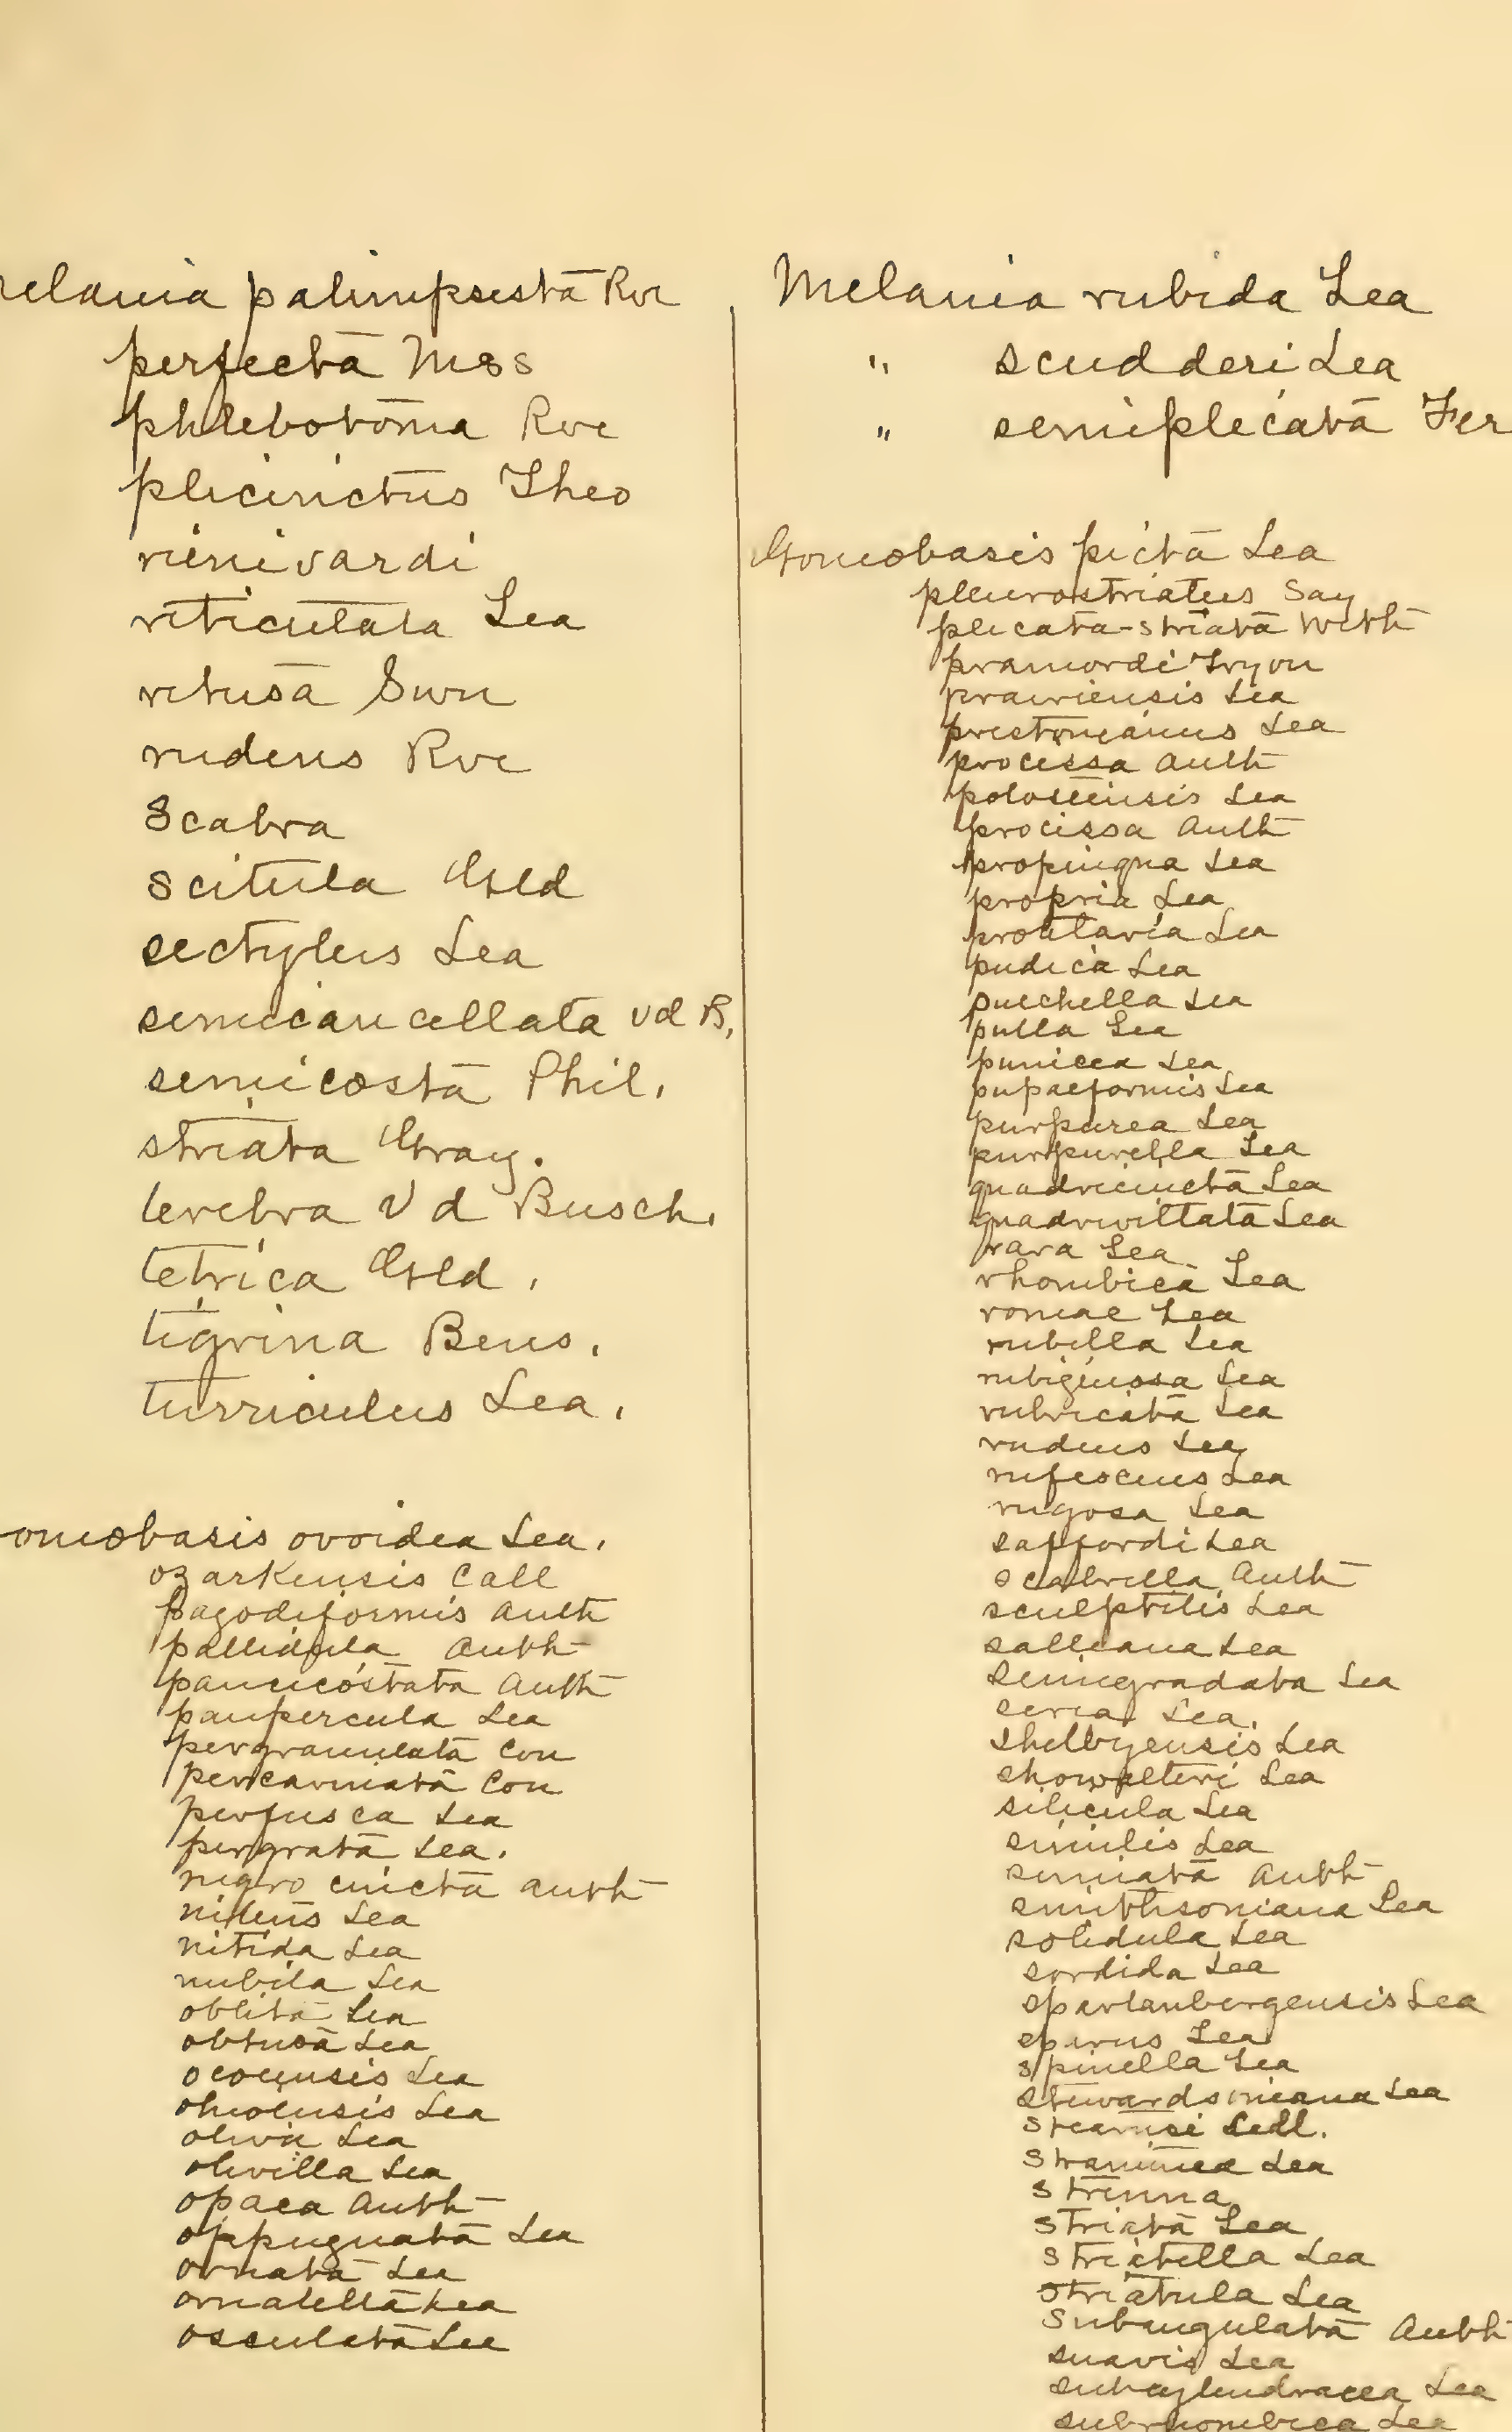 elania palimpsesta Rve
perfecta Mss
phlebotoma Rve
plicinctus Theo
rienivardi
reticulata Lea
retusa Swn
rudens Rve
Scabra
Scitula Gld
sectylus Lea
semicancellata vd B,
semicosta Phil.
striata Gray.
terebra V d Busch.
tetrica Gld.
tigrina Bens.
turriculus Lea.
oniobasis ovoidea Lea.
ozarkensis Call
pagodiformis Anth
pallidula Anth
paucicostata Anth
paupercula Lea
pergranulata Con
percarinata Con
perfusca Lea
pergrata Lea.
nigro cincta anth
nitens Lea
nitida Lea
nubila Lea
oblita Lea
obtusa Lea
ocoeensis Lea
ohioensis Lea
oliva Lea
olivilla Lea
opaca Anth
oppugnata Lea
ornata Lea
ornatella Lea
osculata Lea
Melania rubida Lea
" scudderi Lea
" semiplicata Fer
Goniobasis picta Lea
pleurostriatus Say
plicata-striata Weth
pramordi Tryon
prairiensis Lea
prestonianus Lea
processa Anth
polosiensis Lea
procissa Anth
propinqua Lea
propria Lea
proltaria Lea
pudica Lea
pulchella Lea
pulla Lea
punicea Lea
pupaeformis Lea
purpurea Lea
purpurella Lea
quadricincta Lea
quadrivittata Lea
rara Lea
rhombica Lea
romae Lea
rubella Lea
rubiginosa Lea
rubricata Lea
rudens Lea
rufescens Lea
rugosa Lea
saffordi Lea
scabrella Anth
sculptilis Lea
salleana Lea
semigradata Lea
seria Lea.
shelbyensis Lea
showalteri Lea
silicula Lea
similis Lea
sinuata Anth
smithsoniana Lea
solidula Lea
sordida Lea
spartanbergensis Lea
spurus Lea
spinella Lea
stewardsoniana Lea
stearnsi Ledl.
straminea Lea
strenna
striata Lea
striatella Lea
striatula Lea
subangulata Anth
suavis Lea
subcylindracea Lea
subrhombica Lea